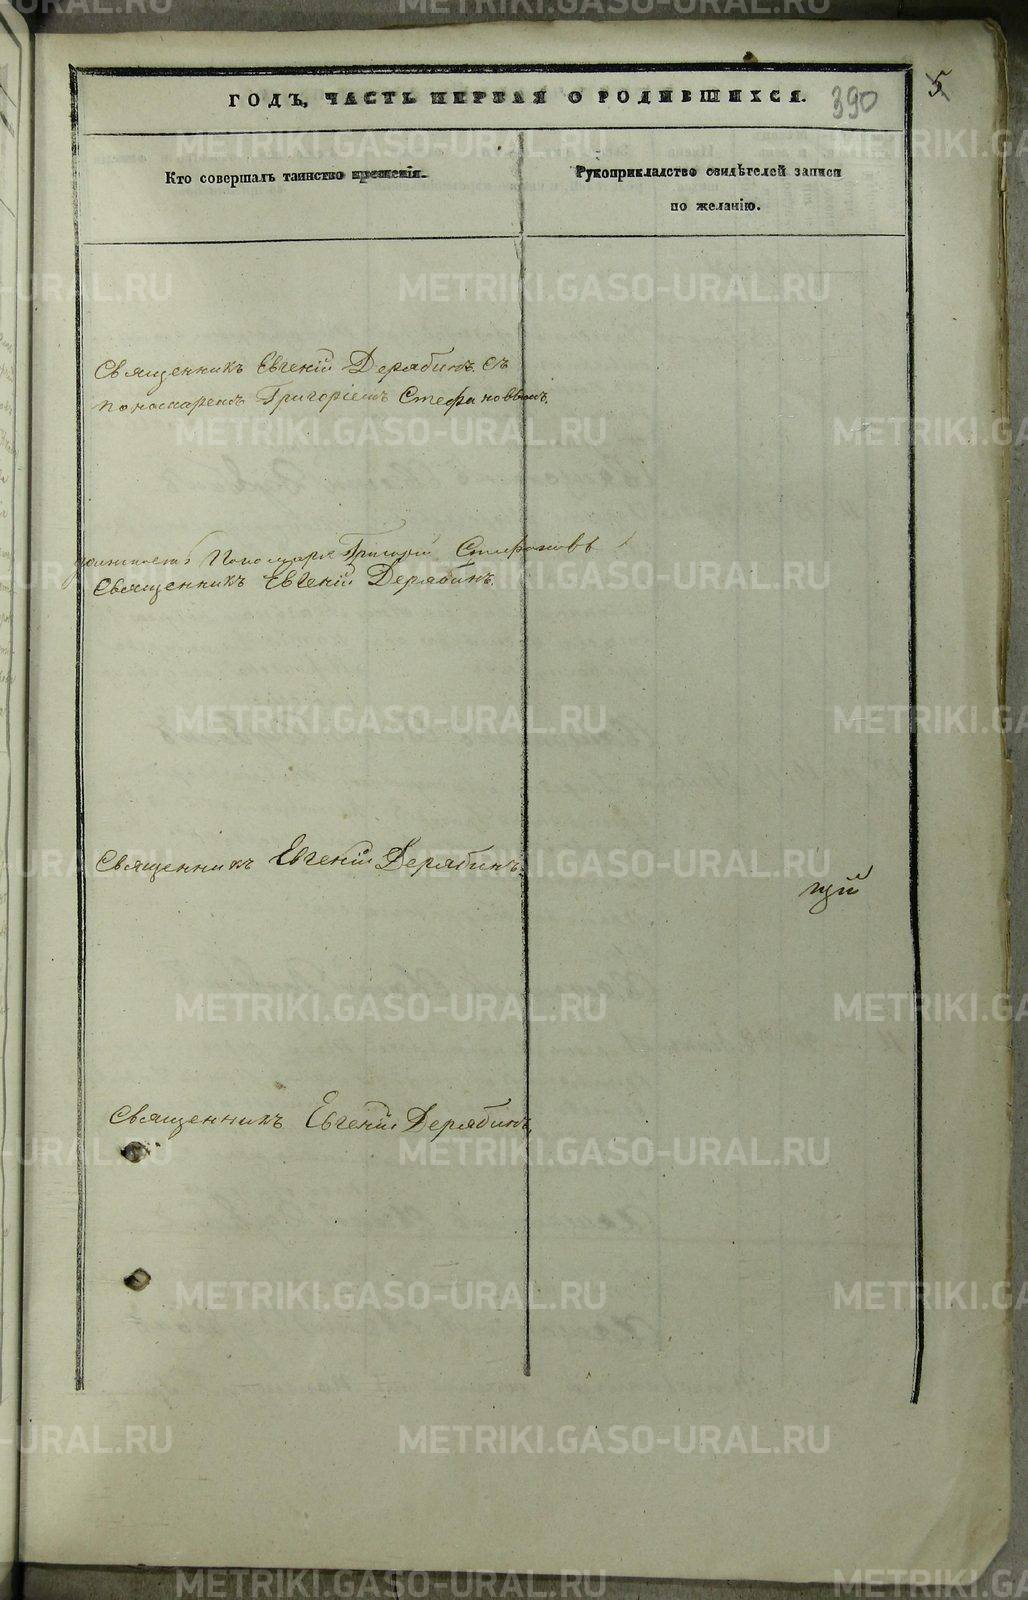 ГОДЪ, ЧАСТЬ ПЕРВАЯ О РОДИВШИХСЯ. 390 5
Кто совершалъ таинство крещенія.
Рукоприкладство свидѣтелей записи
по желанію.
Священникъ Евгеній Дерябинъ съ
пономаремъ Григоріемъ Стефановымъ.
Пономаря Григорій Стефановъ
Священникъ Евгеній Дерябинъ.
Священникъ Евгеній Дерябинъ.
щій
Священникъ Евгеній Дерябинъ.
METRIKI.GASO-URAL.RU